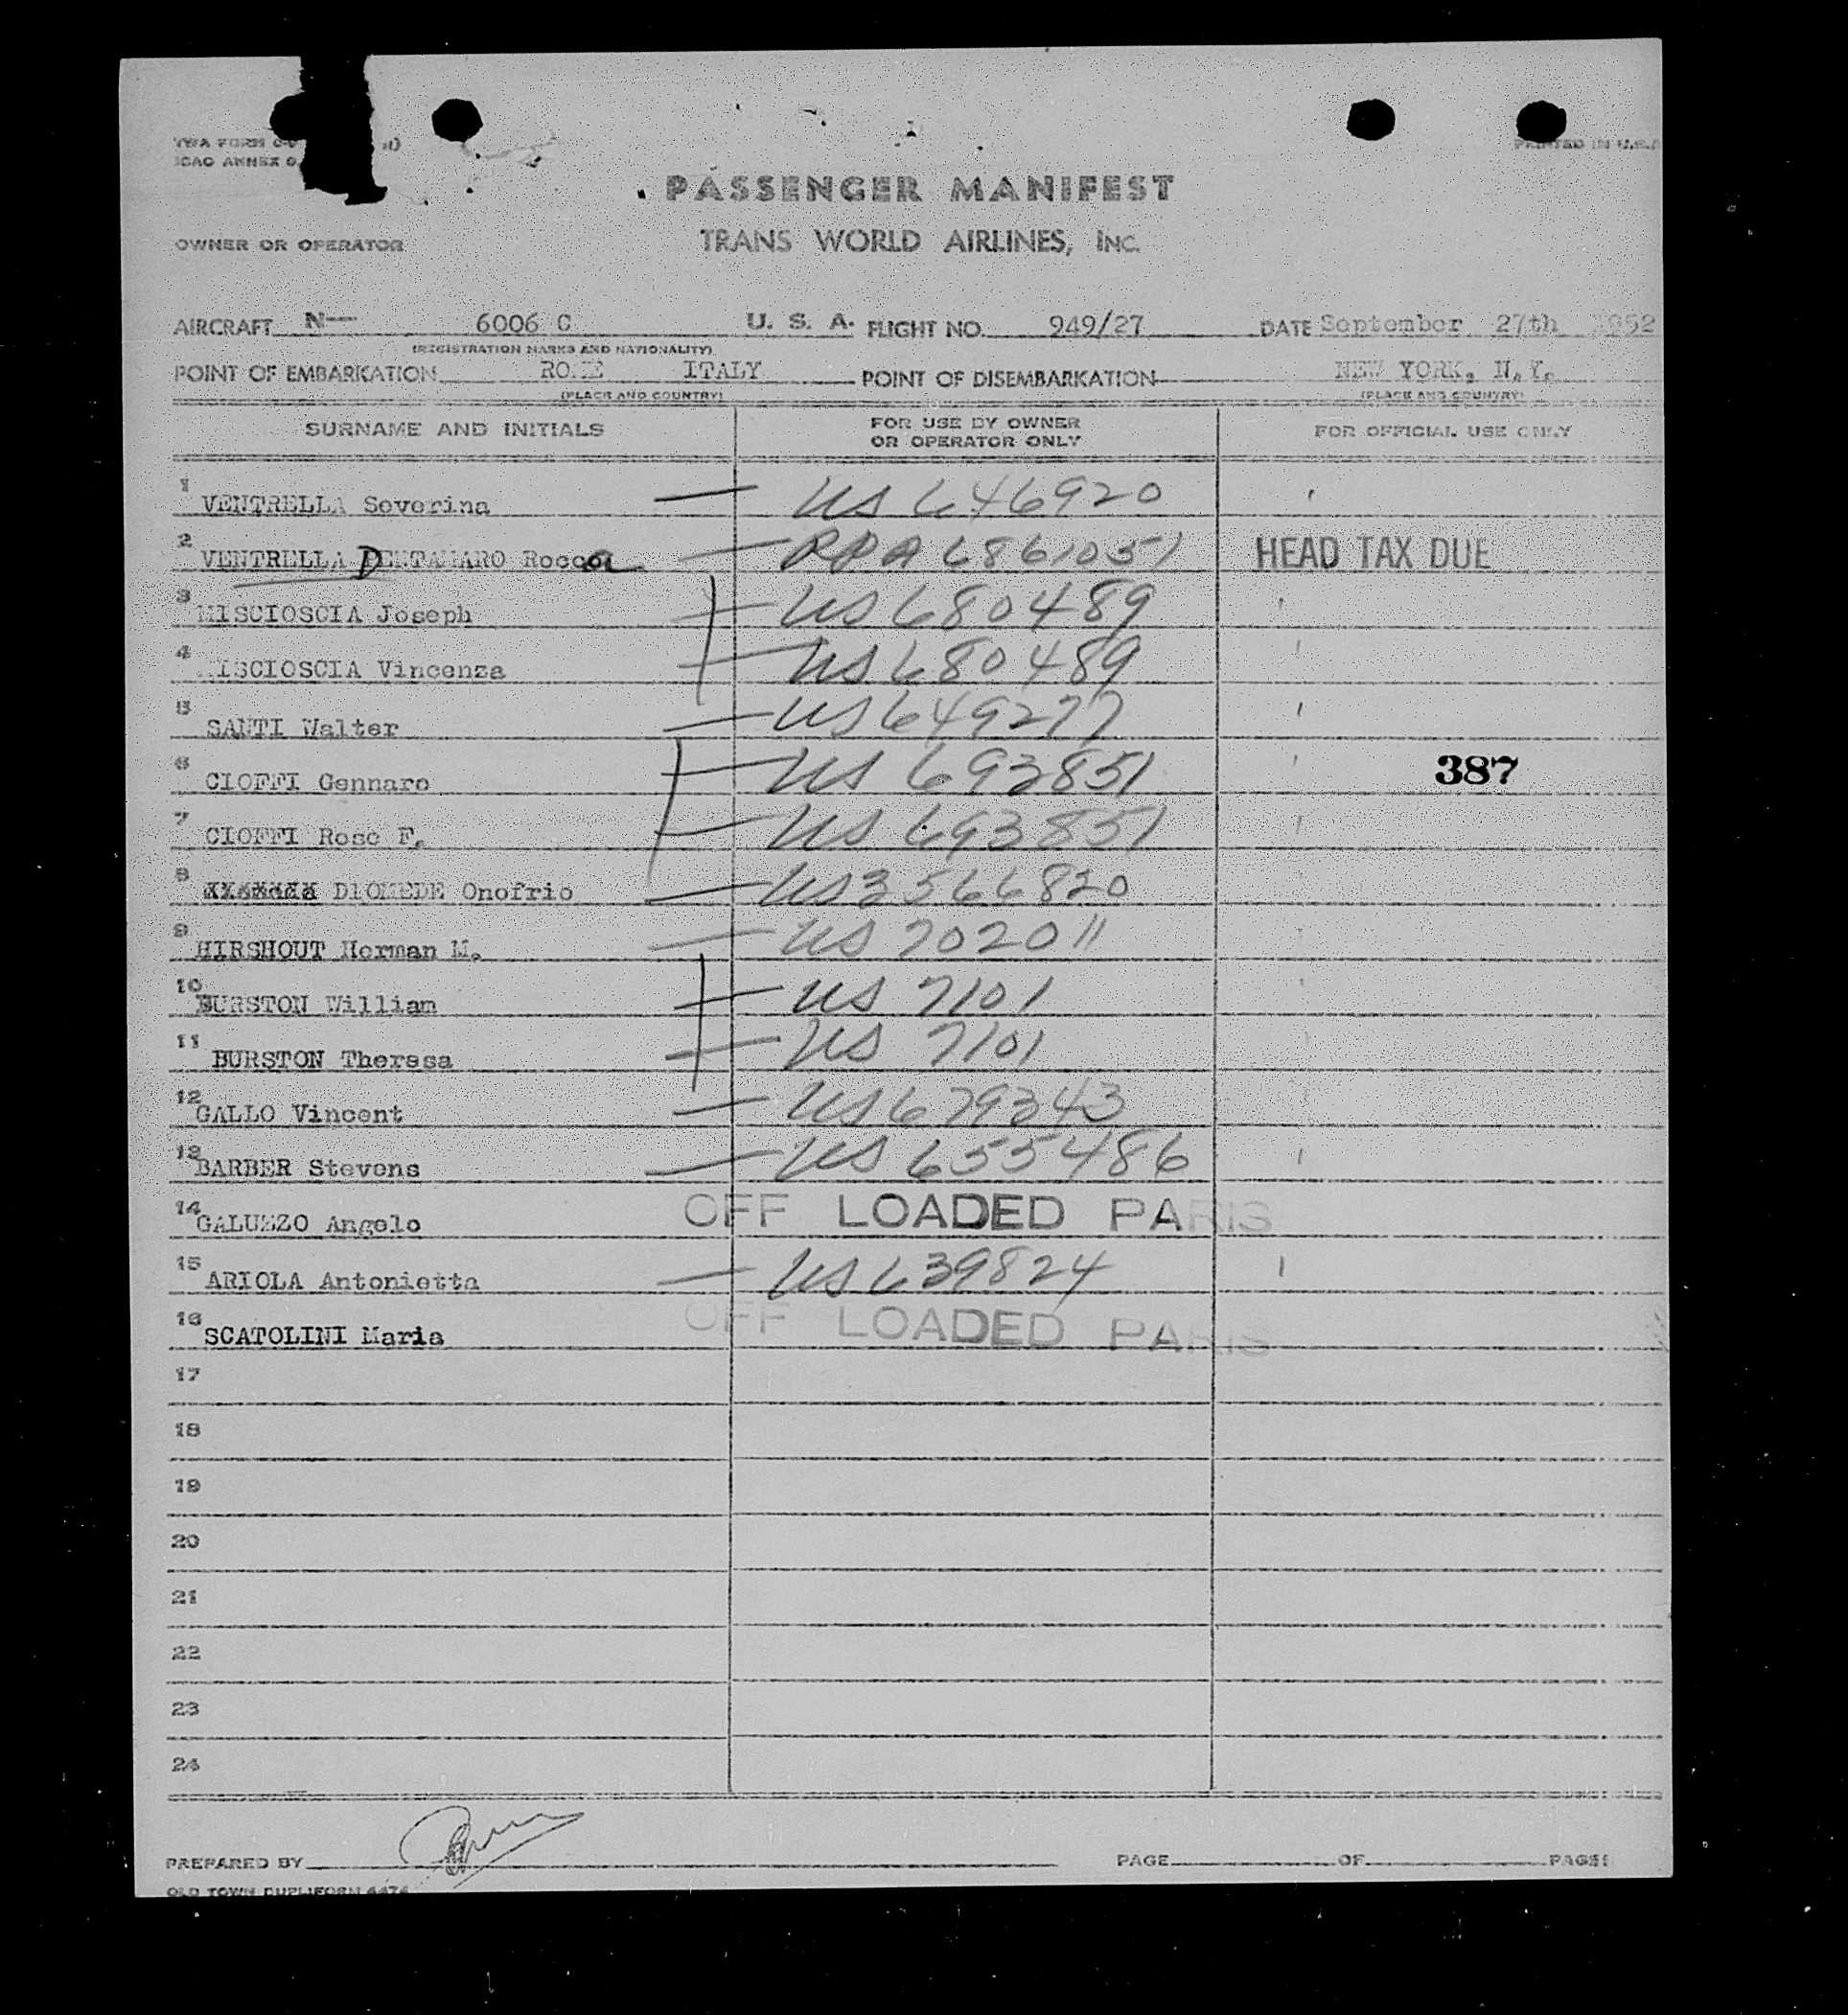 TWA FORM
ICAO ANNEX 9
PRINTED IN U.S.A
PASSENGER MANIFEST
OWNER OR OPERATOR
TRANS WORLD AIRLINES, INC.
AIRCRAFT N— 6006 C U. S. A. FLIGHT NO. 949/27 DATE September 27th 1952
(REGISTRATION MARKS AND NATIONALITY)
POINT OF EMBARKATION ROME ITALY POINT OF DISEMBARKATION NEW YORK, N.Y.
(PLACE AND COUNTRY) (PLACE AND COUNTRY)
SURNAME AND INITIALS FOR USE BY OWNER OR OPERATOR ONLY FOR OFFICIAL USE ONLY
1 VENTRELLA Severina — US 646920
2 VENTRELLA DENTAMARO Rocca — 6861051 HEAD TAX DUE
3 MISCIOSCIA Joseph — US 680489
4 MISCIOSCIA Vincenza — US 680489
5 SANTI Walter — US 649277
6 CIOFFI Gennaro — US 693851 387
7 CIOFFI Rose F. — US 693851
8 DIOMEDE Onofrio — US 3566820
9 HIRSHOUT Herman M. — US 702011
10 BURSTON William — US 7101
11 BURSTON Theresa — US 7101
12 GALLO Vincent — US 679343
13 BARBER Stevens — US 655486
14 GALUZZO Angelo OFF LOADED PARIS
15 ARIOLA Antonietta — US 639824
16 SCATOLINI Maria OFF LOADED PARIS
17
18
19
20
21
22
23
24
PREPARED BY PAGE OF PAGES
OLD TOWN DUPLIFORM 4474